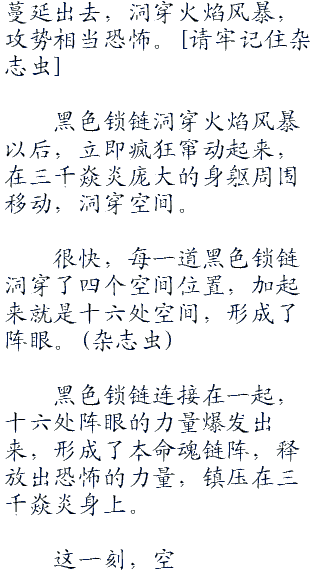 蔓延出去，洞穿火焰风暴，
攻势相当恐怖。[请牢记住杂
志虫]
黑色锁链洞穿火焰风暴
以后，立即疯狂窜动起来，
在三千焱炎庞大的身躯周围
移动，洞穿空间。
很快，每一道黑色锁链
洞穿了四个空间位置，加起
来就是十六处空间，形成了
阵眼。(杂志虫)
黑色锁链连接在一起，
十六处阵眼的力量爆发出
来，形成了本命魂链阵，释
放出恐怖的力量，镇压在三
千焱炎身上。
这一刻，空